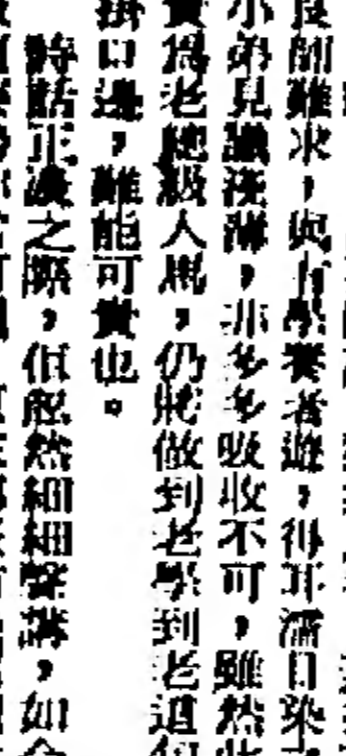 良師難求，與有學養者遊，得耳濡目染
小弟見識淺薄，非多多吸收不可，雖然此
實為老總級人馬，仍將做到老學到老道句
掛口邊，難能可貴也。
電話正談之際，佢忽然細細聲講，如今